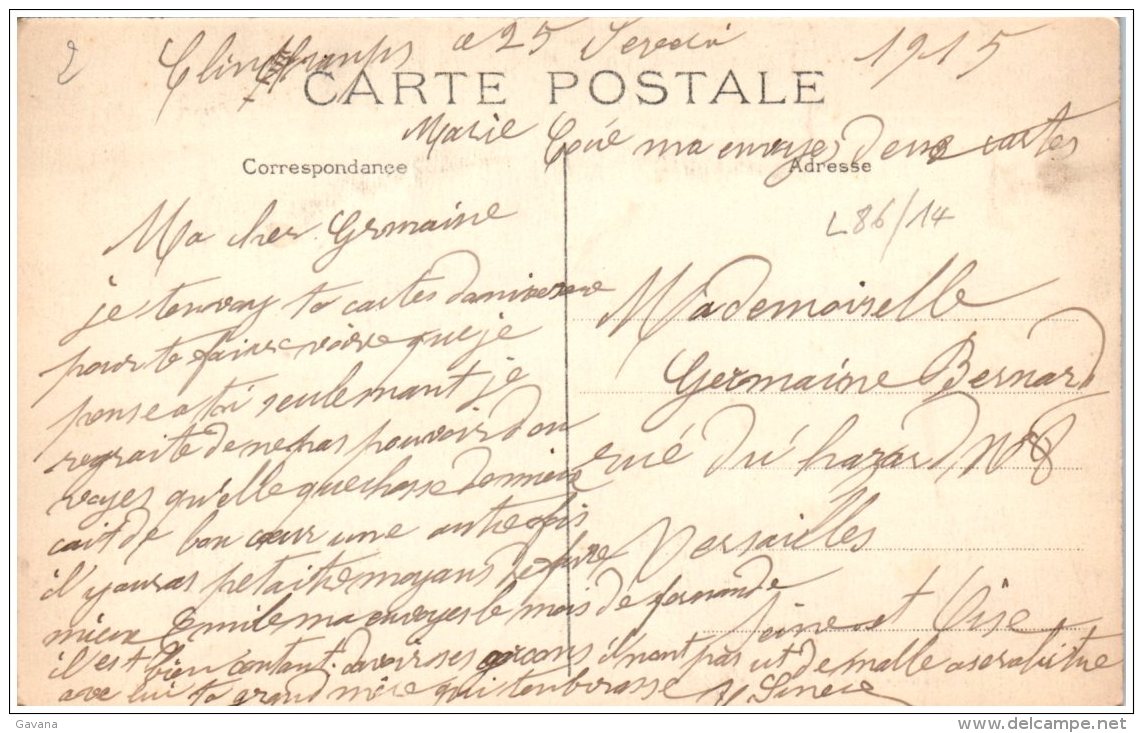 2
a 25 1915
CARTE POSTALE
Marie ma envoyes deux cartes
Correspondance
Adresse
L86/14
Ma cher Germaine
je tenvoy to cartes daniversere
pour te faire voire que je
ponse a toi seulemant je
regraite de ne pas pouvoir don
voyes qu'elle que chosse de mieux
cait de bon cœur une autre fois
il y auras petaitre moyans de faire
mieux Emile ma envoyes le mois de fernande
il est bien contant davoir ses garcons il nont pas ut de malle a se rabitue
avec lui to grand mère qui tenborasse
Mademoiselle
Germaine Bernard
rué du hazard N 8
Versailles
Seine et Oise
Gavana
delcampe.net